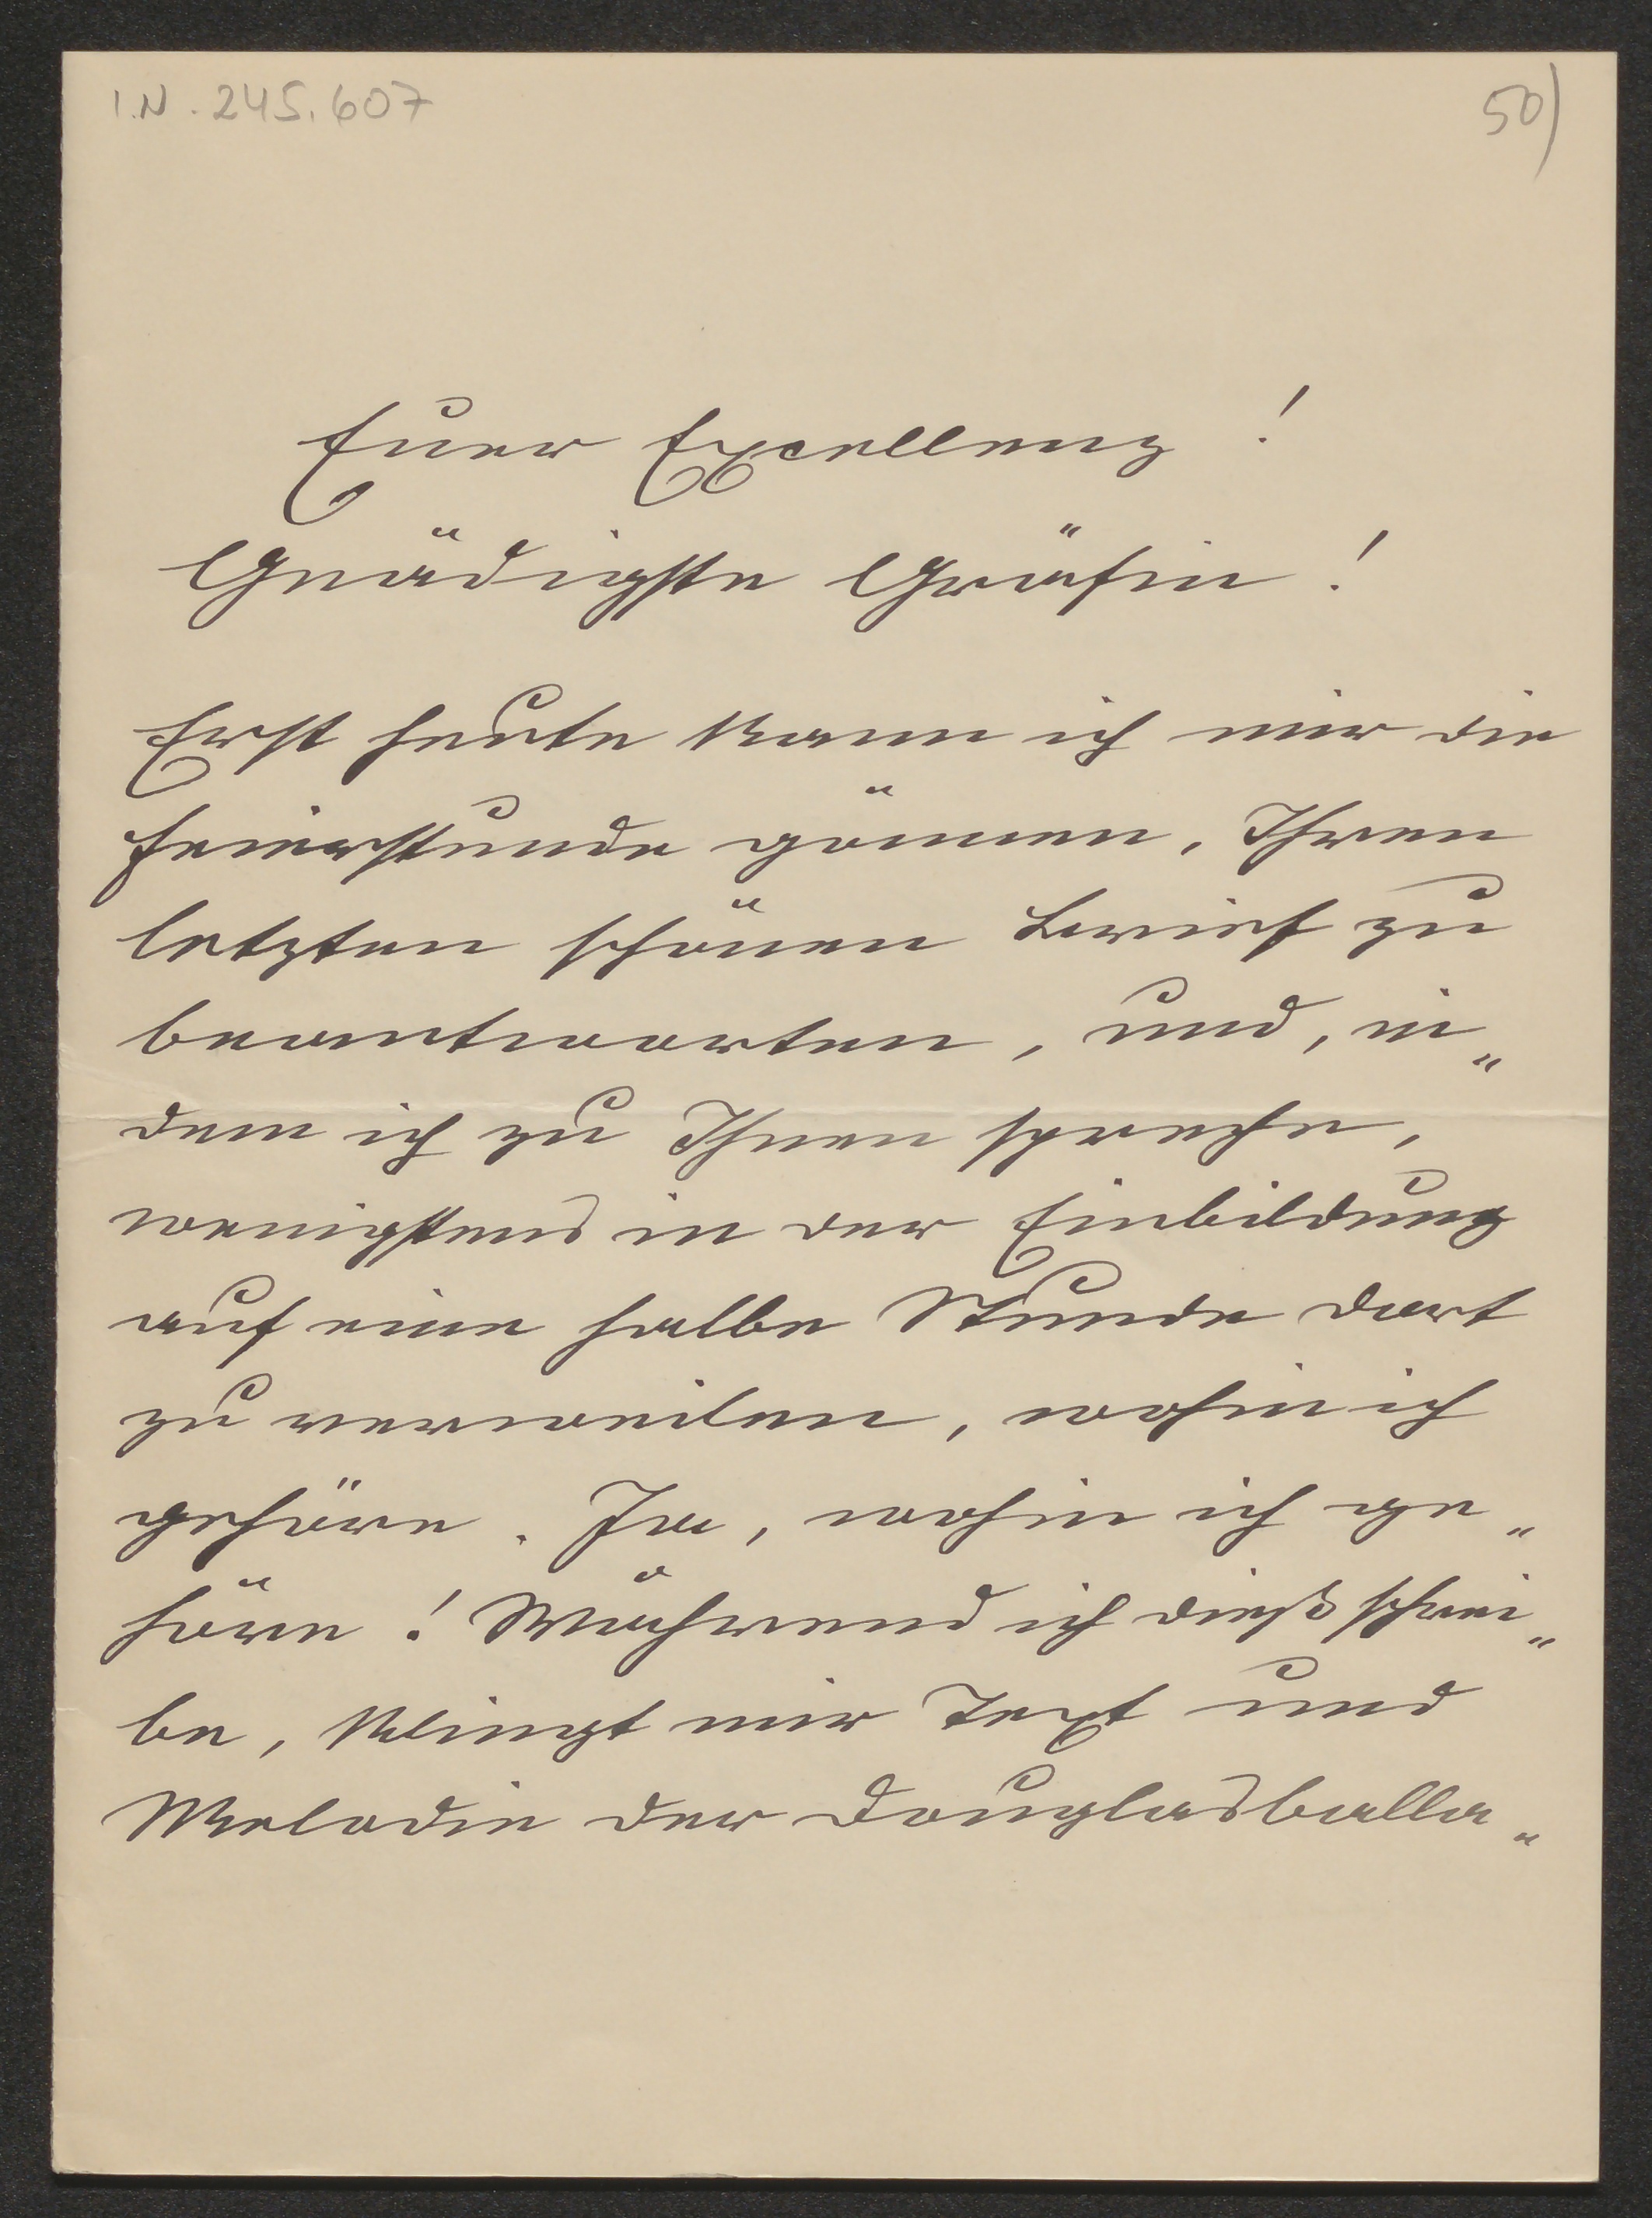 I.N. 245.607
50)
Euer Excellenz !
Gnädigste Gräfin !
Erst heute kann ich mir die
Feierstunde gönnen, Ihren
letzten schönen Brief zu
beantworten, und, in„
dem ich zu Ihnen spreche,
wenigstens in der Einbildung
auf eine halbe Stunde dort
zu verweilen, wohin ich
gehöre. Ja, wohin ich ge„
höre ! Während ich dieß schrei„
be, klingt mir Text und
Melodie der Douglasballa„